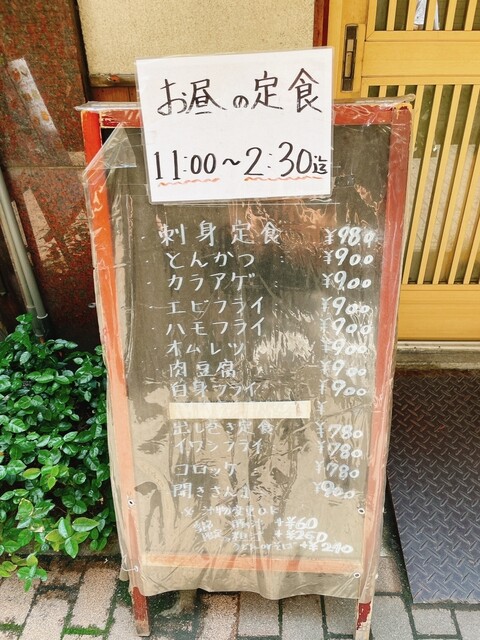 お昼の定食
11:00～2:30迄
刺身定食 ¥980
とんかつ ¥900
カラアゲ ¥900
エビフライ ¥900
ハモフライ ¥900
オムレツ ¥900
肉豆腐 ¥900
白身フライ ¥900
出し巻き定食 ¥780
イワシフライ ¥780
コロッケ ¥780
開きさんま
+¥60
+¥250